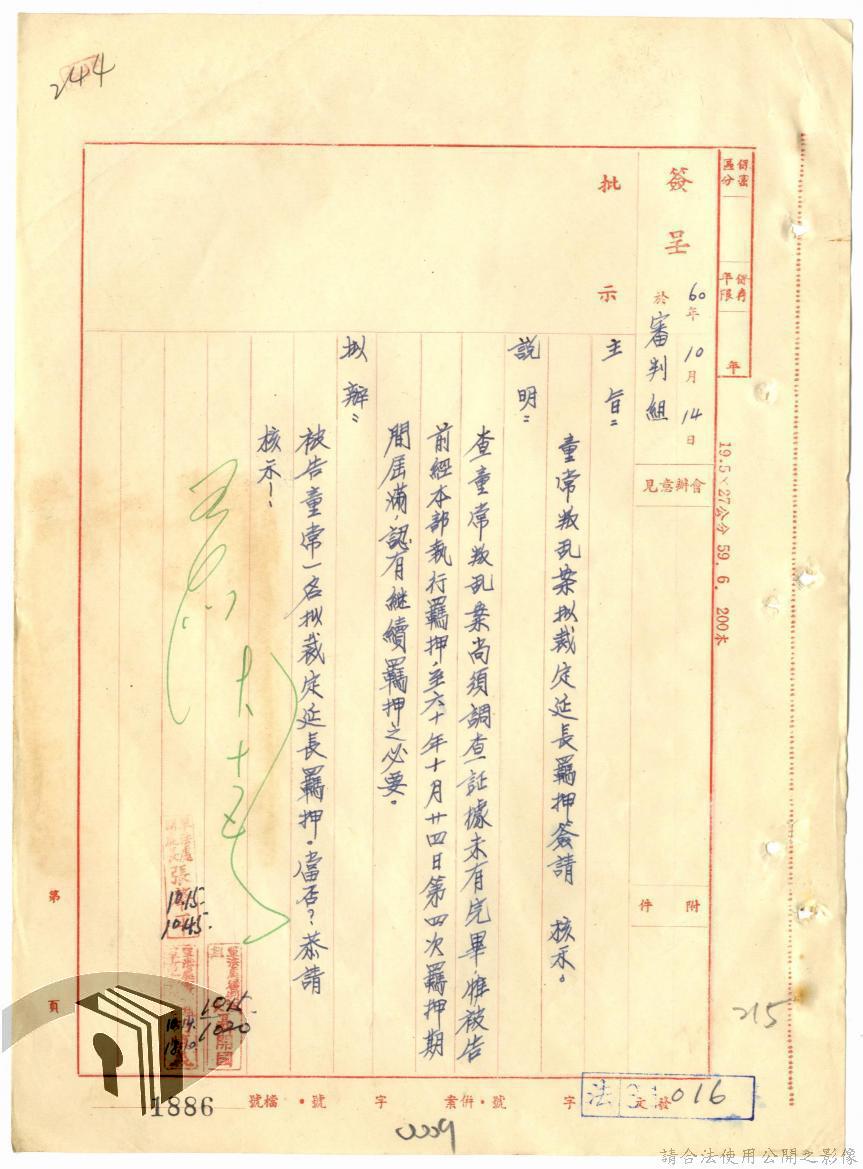 244
保密區分
保存年限
年
19.5×27公分 59. 6. 200本
簽呈
60年10月14日
於審判組
會辦意見
附件
批示
主旨：
童常叛乱案拟裁定延長羈押簽請 核示。
說明：
查童常叛乱案尚須調查証據未有完畢，惟被告
前經本部執行羈押，至六十年十月廿四日第四次羈押期
間屆滿，認有继續羈押之必要。
拟辦：
被告童常一名拟裁定延長羈押。當否？恭請
核示！
10.15.
1045.
1015.
1020
第
頁
215
發文
字
號・併案
字
號・
檔號
法
016
1886
請合法使用公開之影像